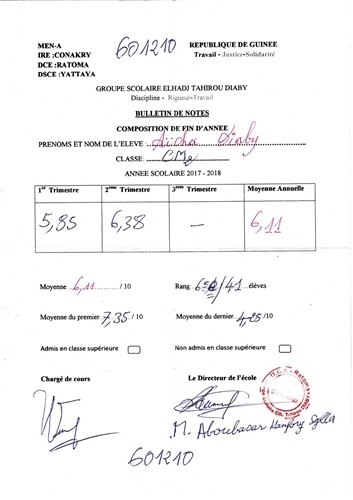 MEN-A
IRE :CONAKRY
DCE :RATOMA
DSCE :YATTAYA
601210
REPUBLIQUE DE GUINEE
Travail - Justice-Solidarité
GROUPE SCOLAIRE ELHADJ TAHIROU DIABY
Discipline - Rigueur-Travail
BULLETIN DE NOTES
COMPOSITION DE FIN D'ANNEE
PRENOMS ET NOM DE L'ELEVE Aicha Diaby
CLASSE: CM2
ANNEE SCOLAIRE 2017 - 2018
1er Trimestre 2ème Trimestre 3ème Trimestre Moyenne Annuelle
5,85 6,38 — 6,11
Moyenne 6,11 / 10 Rang 6 /41 élèves
Moyenne du premier 7,35 /10 Moyenne du dernier 4,25 /10
Admis en classe supérieure Non admis en classe supérieure
Chargé de cours Le Directeur de l'école
M. Aboubacar Sylla
601210